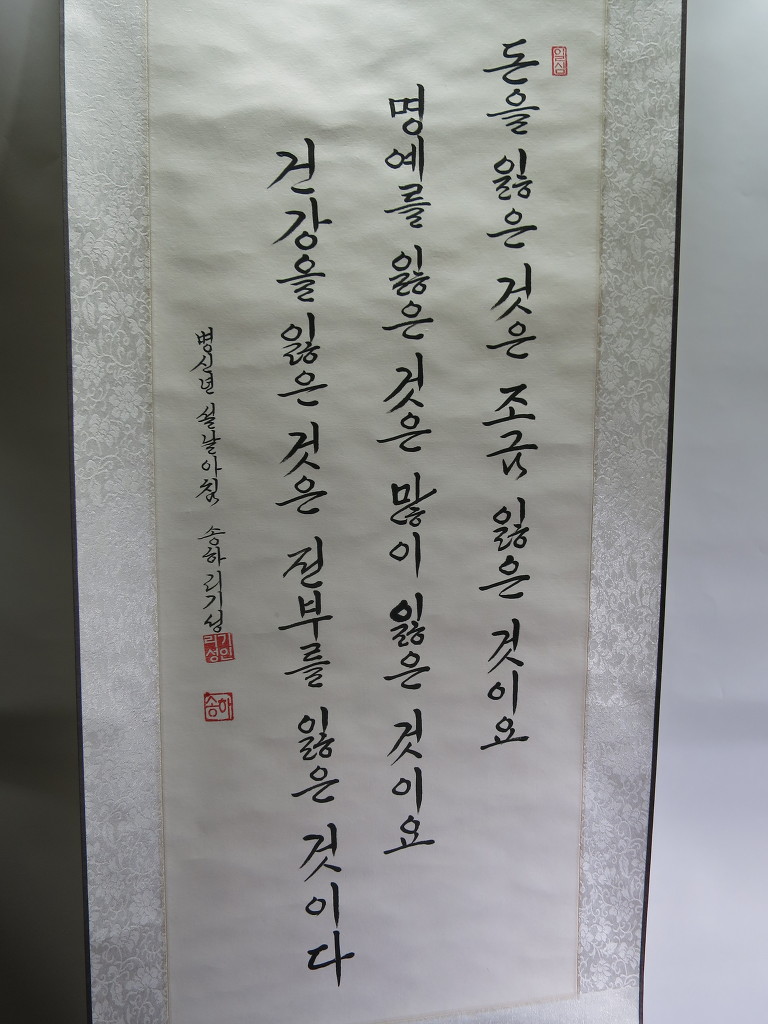 일심
돈을 잃은 것은 조금 잃은 것이요
명예를 잃은 것은 많이 잃은 것이요
건강을 잃은 것은 전부를 잃은 것이다
병신년 설날아침 송하 리기성
리기성인
송하